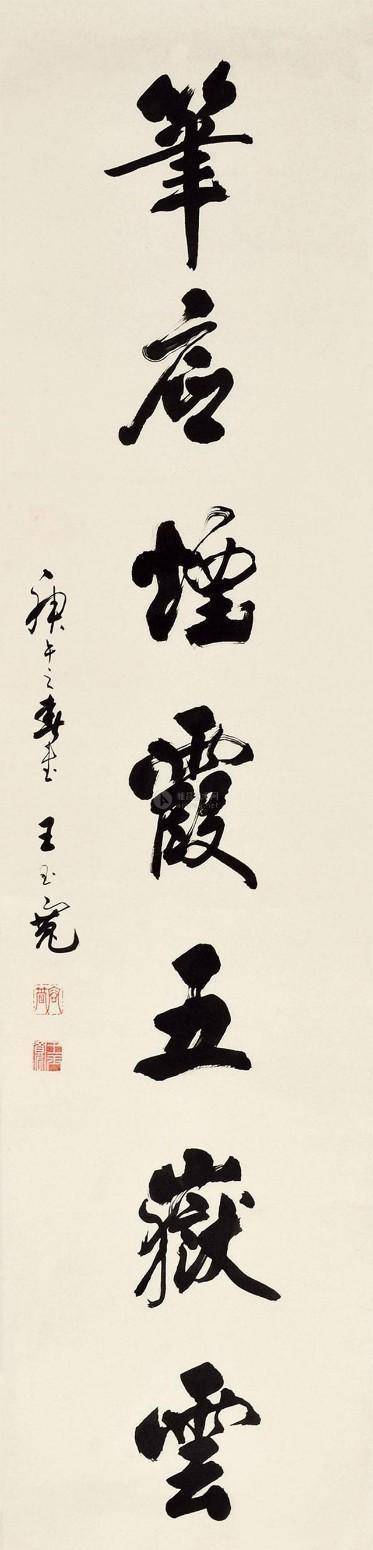 筆底煙霞五嶽雲
庚午之春書 王玉寬